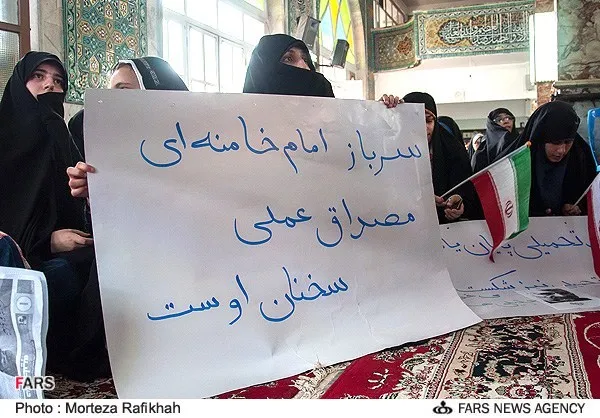 سرباز امام خامنه‌ای
مصداق عملی
سخنان اوست
تحمیلی پایان
شکست
FARS
Photo : Morteza Rafikhah
FARS NEWS AGENCY